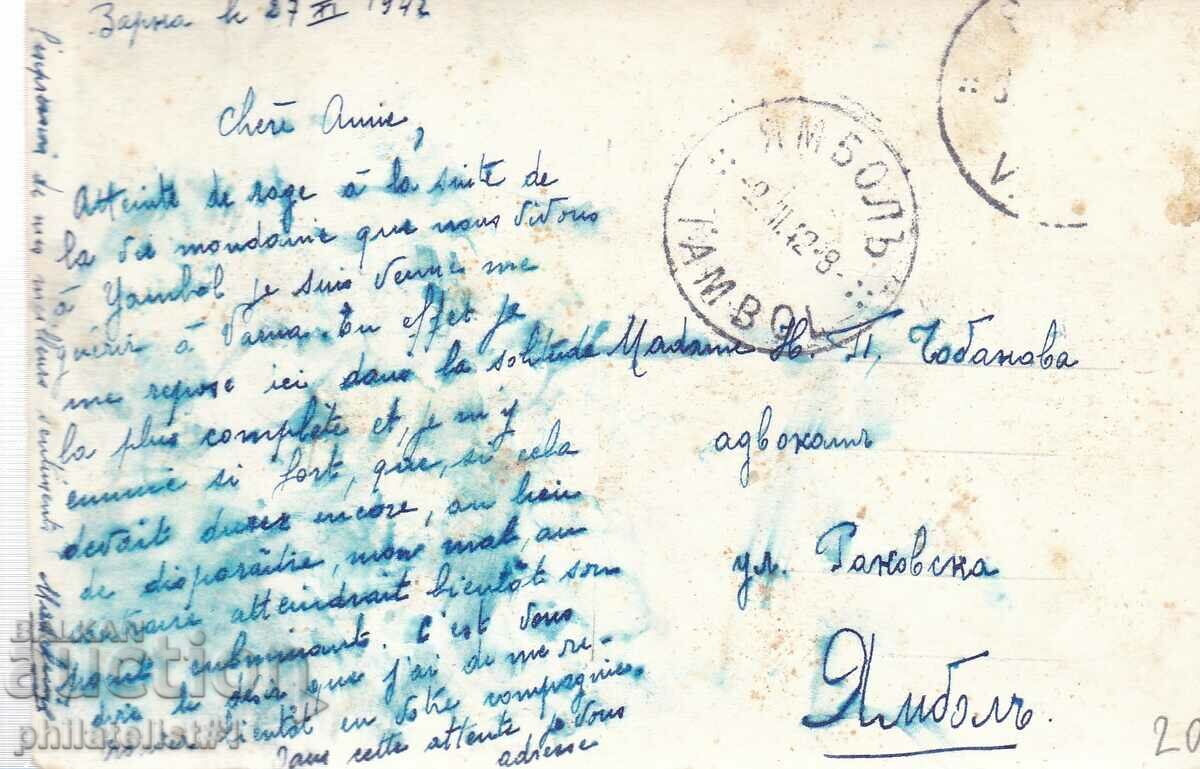 Варна 27 XI 1942
Chère Annie,
Atteinte de rage à la suite de
la vie mondaine que nous vivons
à Yambol je suis venue me
guérir à Varna. En effet je
me repose ici dans la solitude
la plus complète et, je m'y
ennuie si fort, que, si cela
devait durer encore, au lieu
de disparaître, mon mal, au
contraire atteindrait bientôt son
point culminant. C'est vous
dire le désir que j'ai de me re-
bientôt en votre compagnie.
Dans cette attente je vous
adresse
de mes meilleurs sentiments
ЯМБОЛЪ
-2.XII.42-8-
YAMBOL
V.
Madame Н. П. Чобанова
адвокатъ
ул. Раковска
Ямболъ.
20
BALKAN
auction
philatelist74